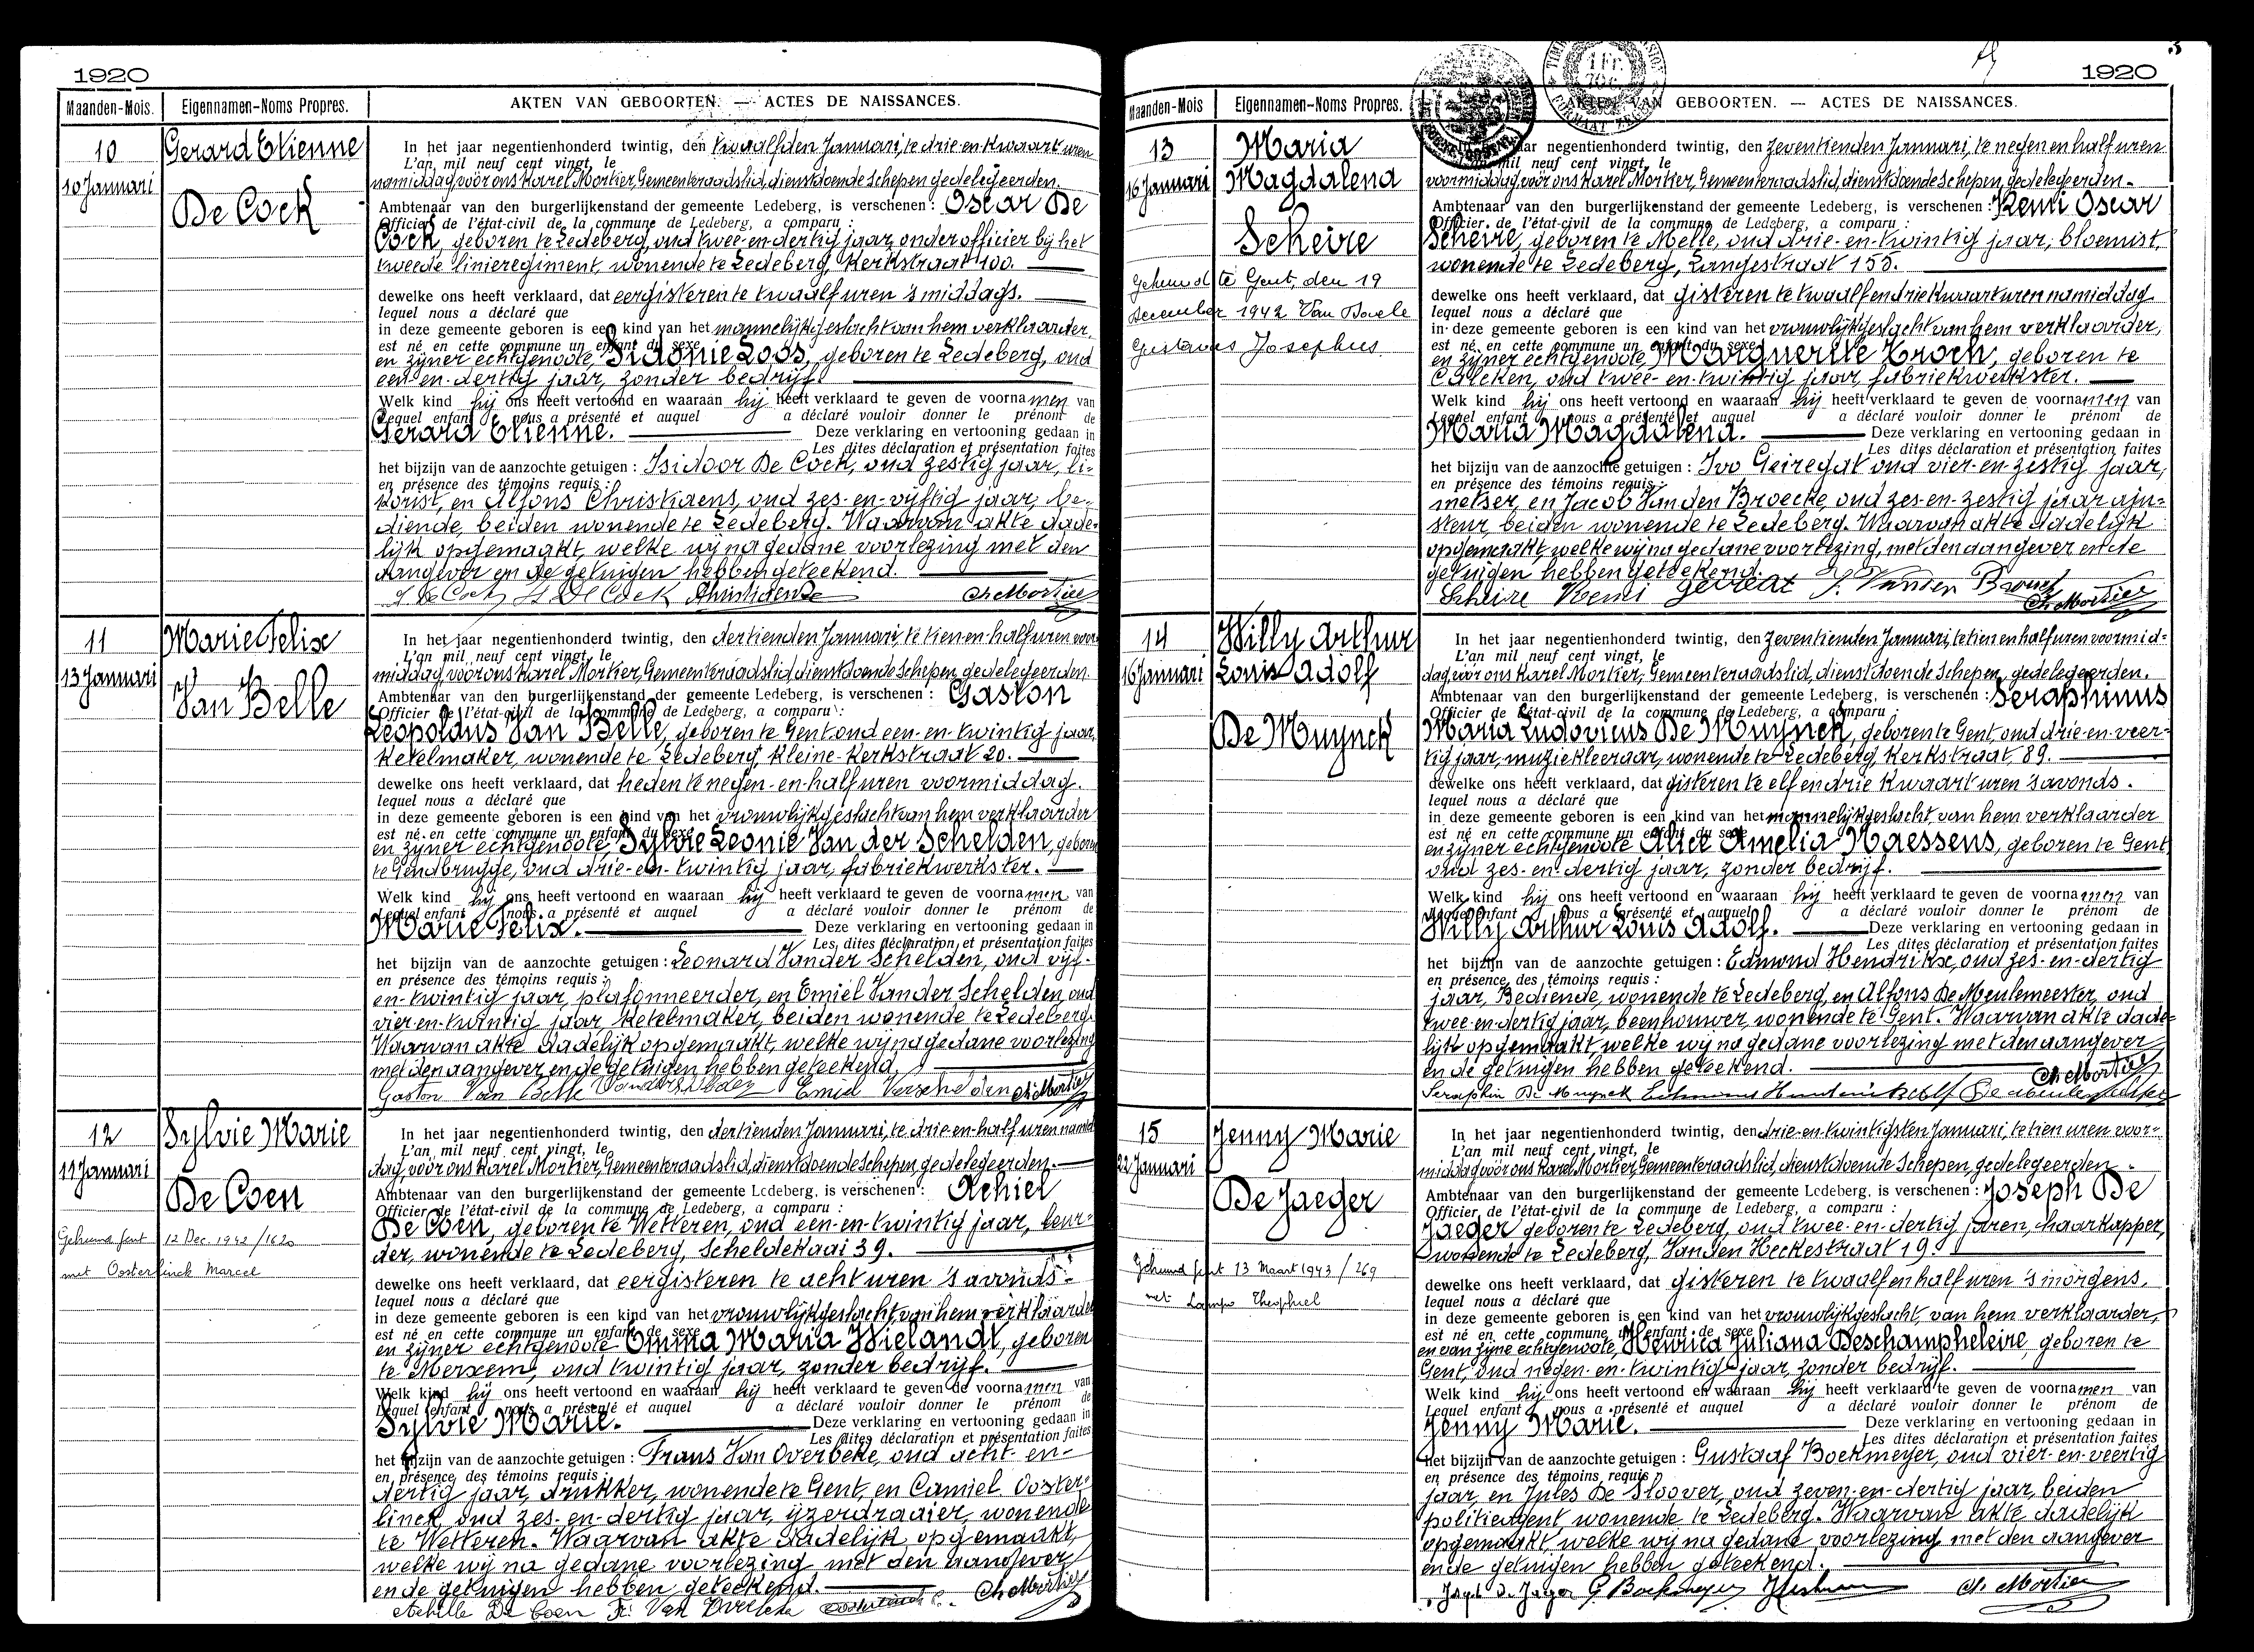 1920
Maanden-Mois. Eigennamen-Noms Propres. AKTEN VAN GEBOORTEN. — ACTES DE NAISSANCES.
10
10 Januari
Gerard Etienne
De Cock
In het jaar negentienhonderd twintig, den twaalfden Januari, te drie en kwaart uren
L'an mil neuf cent vingt, le
namiddag vóór ons Karel Mortier, Gemeenteraadslid, dienstdoende Schepen gedelegeerden.
Ambtenaar van den burgerlijkenstand der gemeente Ledeberg, is verschenen : Oscar De
Officier de l'état-civil de la commune de Ledeberg, a comparu :
Cock, geboren te Ledeberg, oud twee-en-dertig jaar, onderofficier bij het
tweede linieregiment, wonende te Ledeberg, Kerkstraat 100.
dewelke ons heeft verklaard, dat eergisteren te twaalf uren 's middags.
lequel nous a déclaré que
in deze gemeente geboren is een kind van het mannelijk geslacht van hem verklaarder,
est né, en cette commune un enfant du sexe
en zijner echtgenoote Sidonie Loos, geboren te Ledeberg, oud
een-en-dertig jaar, zonder bedrijf.
Welk kind hij ons heeft vertoond en waaraan hij heeft verklaard te geven de voornamen van
Lequel enfant nous a présenté et auquel a déclaré vouloir donner le prénom de
Gerard Etienne. Deze verklaring en vertooning gedaan in
Les dites déclaration et présentation faites
het bijzijn van de aanzochte getuigen : Isidoor De Cock, oud zestig jaar, li-
en présence des témoins requis :
konist, en Alfons Christiaens, oud zes-en-vijftig jaar, be-
diende, beiden wonende te Ledeberg. Waarvan akte dade-
lijk opgemaakt, welke wij na gedane voorlezing met den
aangever en de getuigen hebben geteekend.
Ch Mortier
11
13 Januari
Marie Felix
Van Belle
In het jaar negentienhonderd twintig, den dertienden Januari, te tien en half uren voor-
L'an mil neuf cent vingt, le
middag, vóór ons Karel Mortier, Gemeenteraadslid, dienstdoende Schepen, gedelegeerden
Ambtenaar van den burgerlijkenstand der gemeente Ledeberg, is verschenen : Gaston
Officier de l'état-civil de la commune de Ledeberg, a comparu :
Leopoldus Van Belle, geboren te Gent oud een-en-twintig jaar,
ketelmaker, wonende te Ledeberg, Kleine-Kerkstraat 20.
dewelke ons heeft verklaard, dat heden te negen-en-half uren voormiddag.
lequel nous a déclaré que
in deze gemeente geboren is een kind van het vrouwlijk geslacht van hem verklaarder
est né en cette commune un enfant du sexe
en zijner echtgenoote Sylvie Leonie Van der Schelden, geboren
te Gendbrugge, oud drie-en-twintig jaar, fabriekwerkster.
Welk kind hij ons heeft vertoond en waaraan hij heeft verklaard te geven de voornamen van
Lequel enfant nous a présenté et auquel a déclaré vouloir donner le prénom de
Marie Felix. Deze verklaring en vertooning gedaan in
Les dites déclaration et présentation faites
het bijzijn van de aanzochte getuigen : Leonard Vander Schelden, oud vijf-
en présence des témoins requis :
en-twintig jaar, plafonneerder, en Emiel Vander Schelden, oud
vier-en-twintig jaar, ketelmaker, beiden wonende te Ledeberg.
Waarvan akte dadelijk opgemaakt, welke wij na gedane voorlezing
met den aangever en de getuigen hebben geteekend.
Gaston Van Belle Ch Mortier
12
11 Januari
Sylvie Marie
De Coen
Gehuwd Gent 12 Dec. 1942 / 1620
met Oosterlinck Marcel
In het jaar negentienhonderd twintig, den dertienden Januari, te drie-en-half uren namid-
L'an, mil neuf cent vingt, le
dag, vóór ons Karel Mortier, Gemeenteraadslid, dienstdoende Schepen, gedelegeerden.
Ambtenaar van den burgerlijkenstand der gemeente Ledeberg, is verschenen : Achiel
Officier de l'état-civil de la commune de Ledeberg, a comparu :
De Coen, geboren te Wetteren, oud een-en-twintig jaar, beur-
der, wonende te Ledeberg, Scheldekaai 39.
dewelke ons heeft verklaard, dat eergisteren te acht uren 's avonds.
lequel nous a déclaré que
in deze gemeente geboren is een kind van het vrouwlijk geslacht, van hem verklaarder
est né en cette commune un enfant de sexe
en zijner echtgenoote Emma Maria Wielandt, geboren
te Merxem, oud twintig jaar, zonder bedrijf.
Welk kind hij ons heeft vertoond en waaraan hij heeft verklaard te geven de voornamen van
Lequel enfant nous a présenté et auquel a déclaré vouloir donner le prénom de
Sylvie Marie. Deze verklaring en vertooning gedaan in
Les dites déclaration et présentation faites
het bijzijn van de aanzochte getuigen : Frans Van Overbeke, oud acht-en-
en présence des témoins requis :
dertig jaar, drukker, wonende te Gent, en Camiel Ooster-
linck, oud zes-en-dertig jaar, ijzerdraaier, wonende
te Wetteren. Waarvan akte dadelijk opgemaakt,
welke wij na gedane voorlezing met den aangever
en de getuigen hebben geteekend.
Achille De Coen Fr. Van Overbeke Oosterlinck C. Ch Mortier
3
1920
Maanden-Mois Eigennamen-Noms Propres. AKTEN VAN GEBOORTEN. — ACTES DE NAISSANCES.
13
16 Januari
Maria
Magdalena
Scheire
Gehuwd te Gent, den 19
december 1942 Van Boxele
Gustavus Josephus
jaar negentienhonderd twintig, den zeventienden Januari, te negen en half uren
mil neuf cent vingt, le
voormiddag vóór ons Karel Mortier, Gemeenteraadslid, dienstdoende Schepen, gedelegeerden.
Ambtenaar van den burgerlijkenstand der gemeente Ledeberg, is verschenen : Remi Oscar
Officier de l'état-civil de la commune de Ledeberg, a comparu :
Scheire, geboren te Melle, oud drie-en-twintig jaar, bloemist,
wonende te Ledeberg, Langestraat 155.
dewelke ons heeft verklaard, dat gisteren te twaalf en driekwaart uren namiddag
lequel nous a déclaré que
in deze gemeente geboren is een kind van het vrouwlijk geslacht van hem verklaarder,
est né, en cette commune un enfant du sexe
en zijner echtgenoote Marguerite Troch, geboren te
Calcken, oud twee-en-twintig jaar, fabriekwerkster.
Welk kind hij ons heeft vertoond en waaraan hij heeft verklaard te geven de voornamen van
Lequel enfant nous a présenté et auquel a déclaré vouloir donner le prénom de
Maria Magdalena. Deze verklaring en vertooning gedaan in
Les dites déclaration et présentation faites
het bijzijn van de aanzochte getuigen : Ivo Geiregat oud vier-en-zestig jaar,
en présence des témoins requis :
metser, en Jacob Van den Broecke, oud zes-en-zestig jaar aju-
steur, beiden wonende te Ledeberg. Waarvan akte dadelijk
opgemaakt, welke wij na gedane voorlezing, met den aangever en de
getuigen hebben geteekend.
Scheire Remi Ch Mortier
14
16 Januari
Willy Arthur
Louis Adolf
De Muynck
In het jaar negentienhonderd twintig, den zeventienden Januari, te tien en half uren voormid-
L'an mil neuf cent vingt, le
dag, vóór ons Karel Mortier, Gemeenteraadslid, dienstdoende Schepen, gedelegeerden.
Ambtenaar van den burgerlijkenstand der gemeente Ledeberg, is verschenen : Seraphinus
Officier de l'état-civil de la commune de Ledeberg, a comparu :
Maria Ludovicus De Muynck, geboren te Gent, oud drie-en-veer-
tig jaar, muziekleeraar, wonende te Ledeberg, Kerkstraat, 89.
dewelke ons heeft verklaard, dat gisteren te elf en drie kwaart uren 's avonds.
lequel nous a déclaré que
in deze gemeente geboren is een kind van het mannelijk geslacht, van hem verklaarder
est né en cette commune un enfant du sexe
en zijner echtgenoote Alice Amelia Naessens, geboren te Gent,
oud zes-en-dertig jaar, zonder bedrijf.
Welk kind hij ons heeft vertoond en waaraan hij heeft verklaard te geven de voornamen van
Lequel enfant nous a présenté et auquel a déclaré vouloir donner le prénom de
Willy Arthur Louis Adolf. Deze verklaring en vertooning gedaan in
Les dites déclaration et présentation faites
het bijzijn van de aanzochte getuigen : Edmond Hendrikx, oud zes-en-dertig
en présence des témoins requis :
jaar, Bediende, wonende te Ledeberg, en Alfons De Meulemeester, oud
twee-en-dertig jaar, beenhouwer, wonende te Gent. Waarvan akte dade-
lijk opgemaakt, welke wij na gedane voorlezing met den aangever
en de getuigen hebben geteekend.
Ch Mortier
Seraphin De Muynck
15
22 Januari
Jenny Marie
De Jaeger
Gehuwd Gent 13 Maart 1943 / 269
met Lampo Theophiel
In het jaar negentienhonderd twintig, den drie-en-twintigsten Januari, te tien uren voor-
L'an mil neuf cent vingt, le
middag vóór ons Karel Mortier, Gemeenteraadslid, dienstdoende Schepen, gedelegeerden.
Ambtenaar van den burgerlijkenstand der gemeente Ledeberg, is verschenen : Joseph De
Officier de l'état-civil de la commune de Ledeberg, a comparu :
Jaeger geboren te Ledeberg, oud twee-en-dertig jaren, haarkapper,
wonende te Ledeberg, Vanden Heckestraat 19.
dewelke ons heeft verklaard, dat gisteren te twaalf en half uren 's morgens.
lequel nous a déclaré que
in deze gemeente geboren is een kind van het vrouwlijk geslacht, van hem verklaarder,
est né en cette commune un enfant de sexe
en van zijne echtgenoote, Henrica Juliana Deschampheleire, geboren te
Gent, oud negen-en-twintig jaar, zonder bedrijf.
Welk kind hij ons heeft vertoond en waaraan hij heeft verklaard te geven de voornamen van
Lequel enfant nous a présenté et auquel a déclaré vouloir donner le prénom de
Jenny Marie. Deze verklaring en vertooning gedaan in
Les dites déclaration et présentation faites
het bijzijn van de aanzochte getuigen : Gustaaf Boekmeyer, oud vier-en-veertig
en présence des témoins requis
jaar, en Jules De Sloover, oud zeven-en-dertig jaar, beiden
politieagent, wonende te Ledeberg. Waarvan akte dadelijk
opgemaakt, welke wij na gedane voorlezing, met den aangever
en de getuigen hebben geteekend.
Ch. Mortier